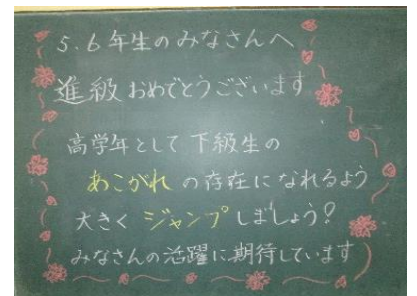 5.6年生のみなさんへ
進級おめでとうございます
高学年として下級生の
あこがれの存在になれるよう
大きくジャンプしましょう?
みなさんの活躍に期待しています